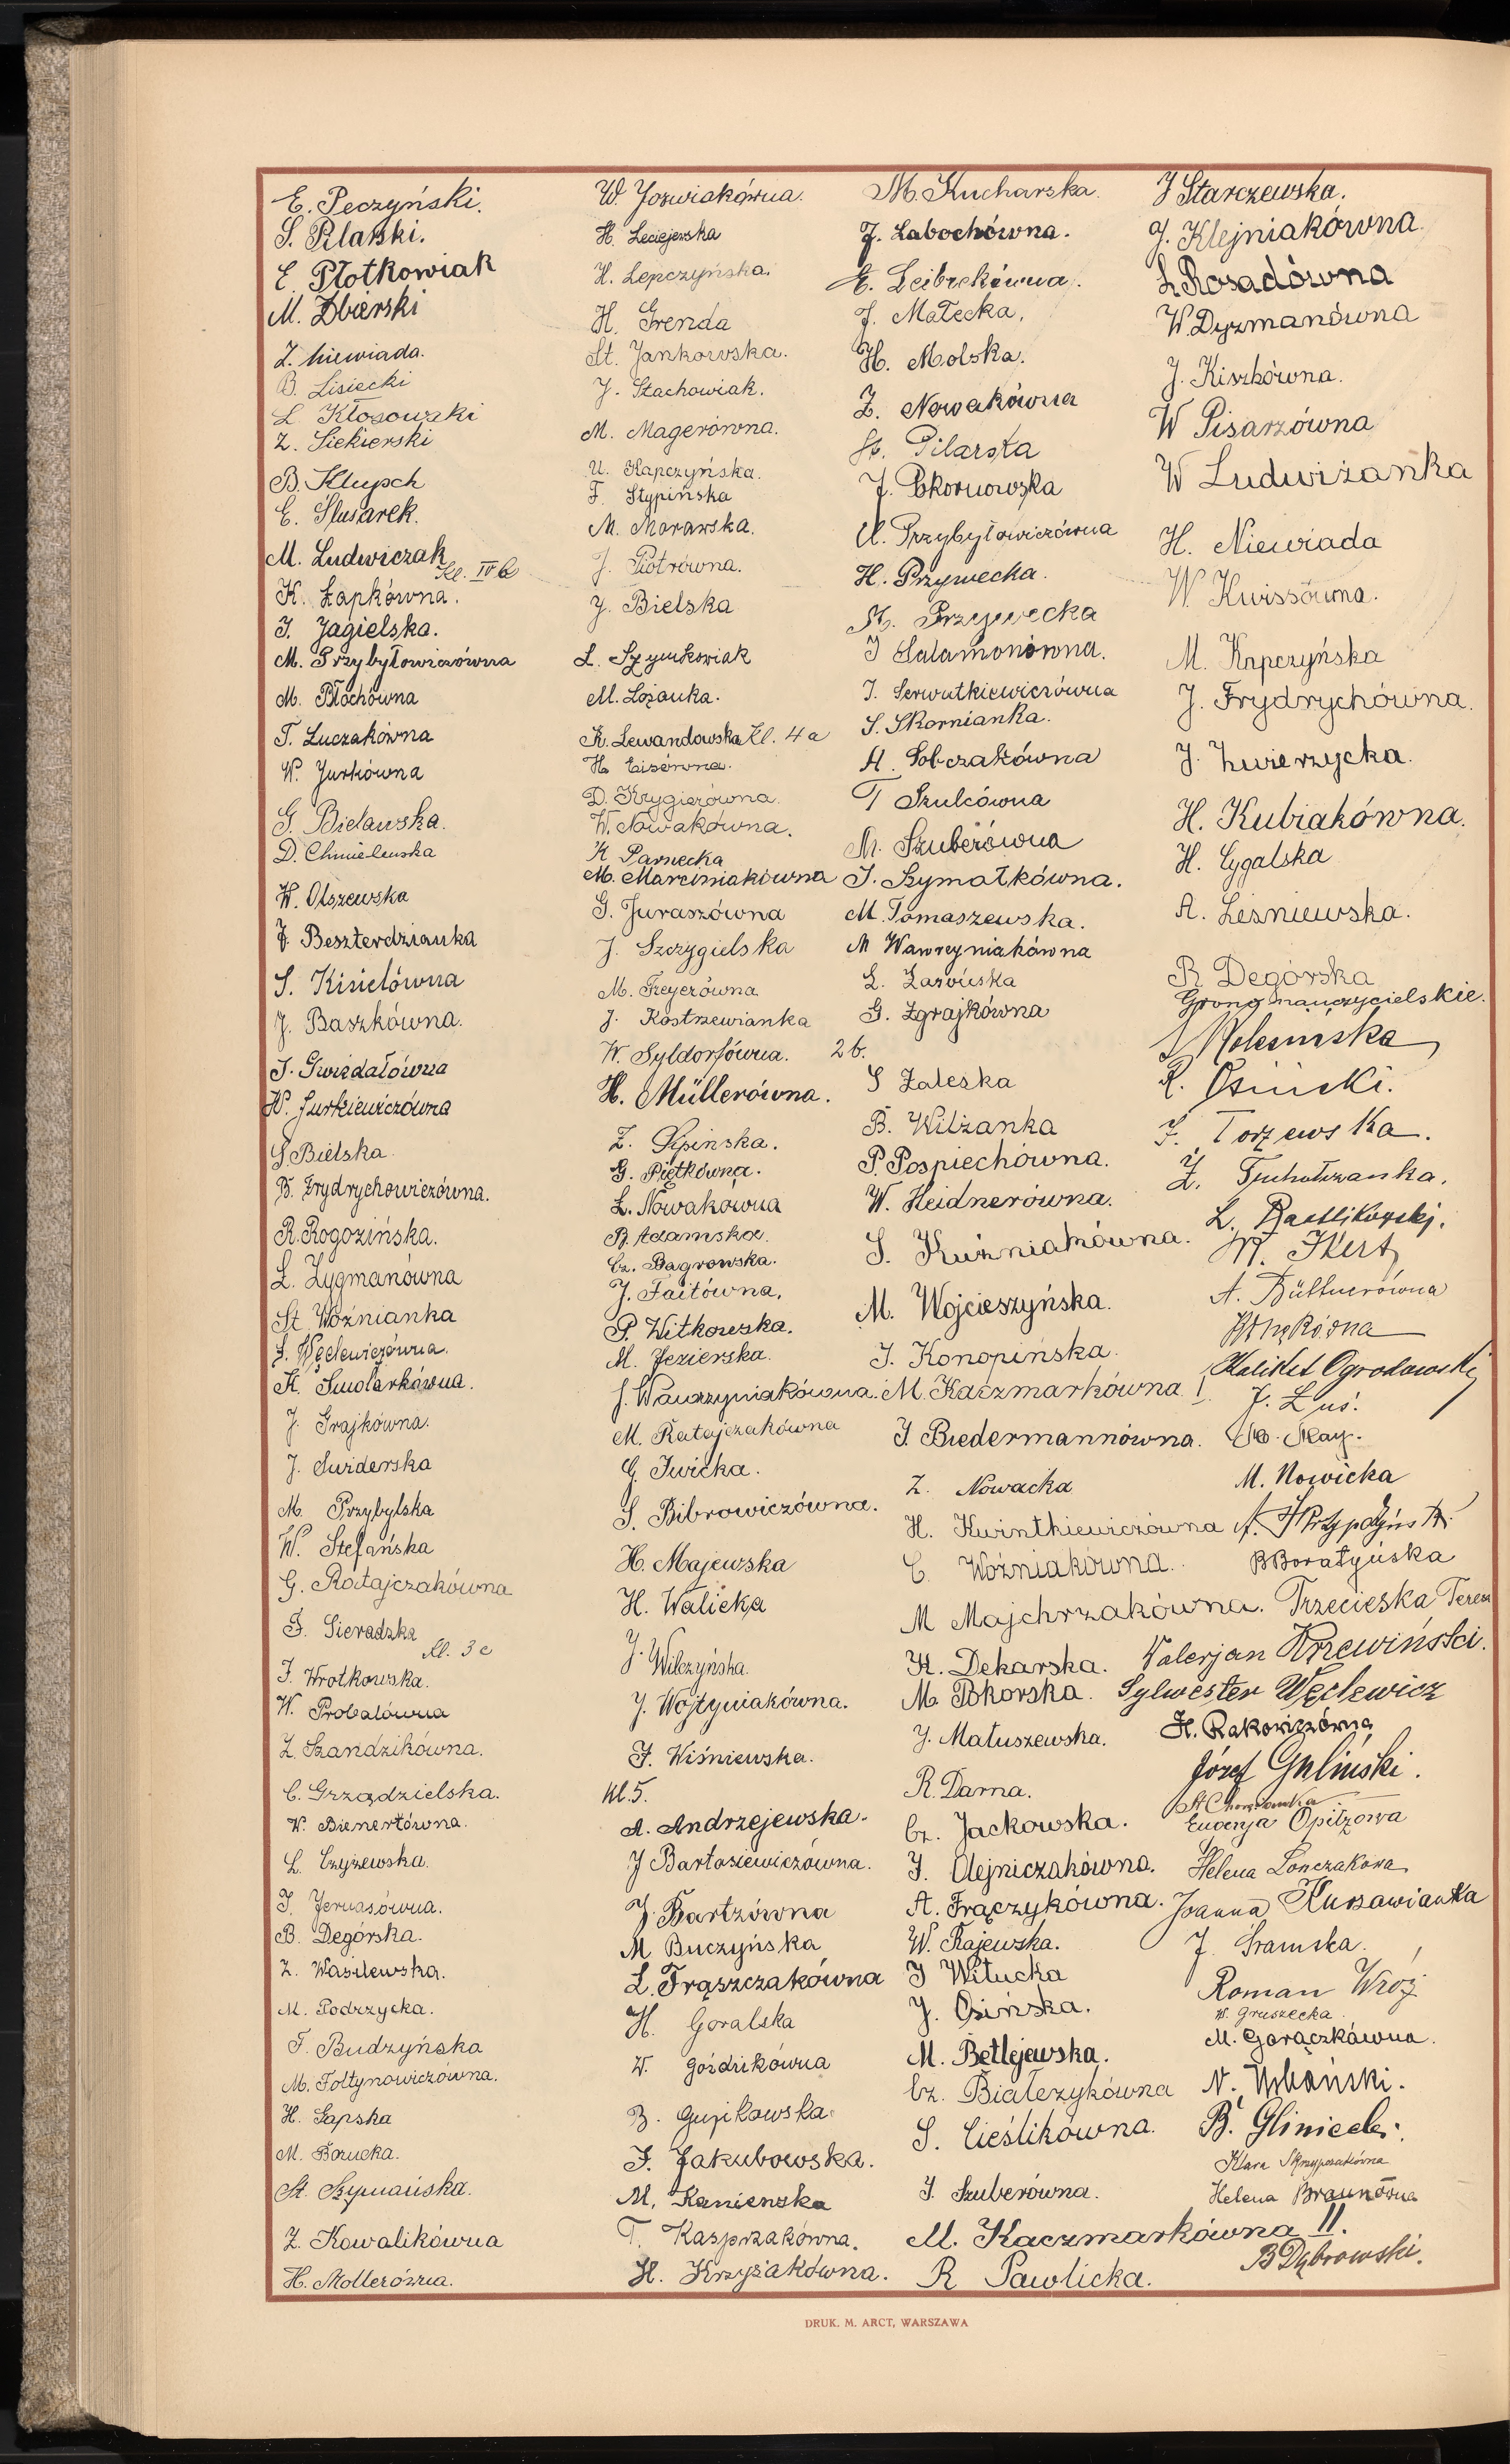 E. Peczyński.
S. Pilarski.
E. Płotkowiak
M. Zbierski
Z. Niewiada.
B. Lisiecki
L. Kłosowski
Z. Siekierski
B. Klupsch
E. Ślusarek.
M. Ludwiczak
Kl. IV b
K. Łapkówna.
J. Jagielska.
M. Przybyłowiczówna
M. Błochówna
T. Łuczakówna
W. Jurkówna
G. Bielawska.
D. Chmielewska
W. Olszewska
J. Beszterdzianka
S. Kisielówna
J. Baszkówna.
J. Gwizdałówna
W. Jurkiewiczówna
S. Bielska
B. Frydrychowiczówna.
R. Rogozińska.
L. Zygmanówna
St. Woźnianka
J. Węclewiczówna.
K. Smolarkówna.
J. Grajkówna.
J. Świderska
M. Przybylska
W. Stefańska
G. Ratajczakówna
J. Sieradzka
Kl. 3 c
J. Wrotkowska.
W. Probalówna
Z. Szandzikówna.
C. Grządzielska.
W. Bienertówna.
L. Czyżewska.
J. Jeruasówna.
B. Degórska.
Z. Wasilewska.
M. Podrzycka.
J. Budzyńska
M. Fołtynowiczówna.
H. Sapska
M. Borucka.
St. Szymańska.
Z. Kowalikówna
H. Mollerówna.
W. Jozwiakówna.
H. Leciejewska
H. Lepczyńska.
H. Grenda
St. Jankowska.
J. Stachowiak.
M. Magerówna.
U. Kapczyńska.
F. Stypińska
M. Morawska.
J. Piotrówna.
J. Bielska
L. Szymkowiak
M. Lozanka.
K. Lewandowska Kl. 4 a
H. Eisówna.
D. Krygierówna.
W. Nowakówna.
K Parnecka
M. Marciniakówna
G. Juraszówna
J. Szczygielska
M. Freyerówna
J. Kostrzewianka
W. Syldorfówna.
H. Müllerówna.
Z. Lipinska.
G. Piętkówna.
L. Nowakówna
B. Adamska.
Cz. Bagrowska.
J. Faitówna.
P. Witkowska.
M. Jezierska.
J. Wawrzyniakówna.
M. Ratajczakówna
G. Iwicka.
S. Bibrowiczówna.
H. Majewska
H. Walicka
J. Wilczyńska.
J. Wojtyniakówna.
F. Wiśniewska.
Kl. 5.
A. Andrzejewska.
J Bartosiewiczówna.
J. Bartzówna
M Buczyńska
L. Frąszczakówna
H. Goralska
W. Goździkówna
B. Gujikowska
J. Jakubowska.
M. Kanienska
T. Kasprzakówna.
H. Krzyżakówna.
M. Kucharska.
J. Labochówna.
E. Leibrekówna.
J. Małecka.
H. Molska.
Z. Nowakówna
H. Pilarska
J. Pokornowska
U. Przybyłowiczówna
H. Przywecka.
M. Przywecka
J Salamonówna.
J. Serwutkiewiczówna
S. Skornianka.
H. Sobczakówna
T Szulcówna
M. Szuberówna
J. Szymałkówna.
M. Tomaszewska.
M Wawrzyniakówna
L. Zarówska
G. Zgrajkówna
2 b.
S Zaleska
B. Wilżanka
P. Pospiechówna.
W. Heidnerówna.
S. Kuźniakówna.
M. Wojcieszyńska.
J. Konopińska.
M. Kaczmarkówna I.
J. Biedermannówna.
Z. Nowacka
H. Kwintkiewiczówna
C. Woźniakówna.
M Majchrzakówna.
H. Dekarska.
M Pokorska.
J. Matuszewska.
R. Darna.
Cz. Jackowska.
J. Olejniczakówna.
A. Frączykówna.
W. Rajewska.
J Witucka
J. Osińska.
M. Betlejewska.
Cz. Białezykówna
S. Cieślikówna.
J. Szuberówna.
M. Kaczmarkówna II.
R Pawlicka.
J Starczewska.
J. Klejniakówna.
L Rosadówna
W. Dyzmanówna
J. Kiszkówna.
W Pisarzówna
W Ludwiżanka
H. Niewiada
W. Kwissówna.
M. Kapczyńska
J. Frydrychówna.
J. Zwierzycka.
H. Kubiakówna.
H. Cygalska
A. Leśniewska.
R Degórska
Grono nauczycielskie.
R. Osiński.
J. Torzewska.
Z. Tucholzanka.
A. Büttnerówna
Kalikst Ogrodowski
J. Łuś.
M. Nowicka
B Boratyńska
Trzecieska Teresa
Walerjan Krzewiński.
Sylwester Węclewicz
H. Rakowiczówna
Józef Guliński.
Eugenja Opitzowa
Helena Lonczakowa
Joanna Kujawianka
J. Sramska.
Roman Wróż
W. Gruszecka.
M. Gorączkówna.
N. Urbański.
B. Gliniecki.
Klara Skrzypczakówna
Helena Braunówna
B Dąbrowski.
DRUK. M. ARCT, WARSZAWA